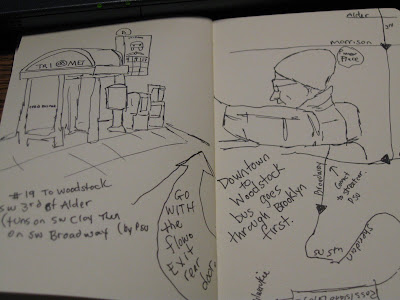 TRI MET
# 19 To Woodstock
SW 3rd & Alder
(tuns on SW Clay Then
on SW Broadway (by PSU
GO
WITH
the
flow
EXIT
rear
door
Alder
3rd
morrison
Place
Downtown
to
Woodstock
bus goes
through Brooklyn
first.
Broadway
PSU
SW 5th